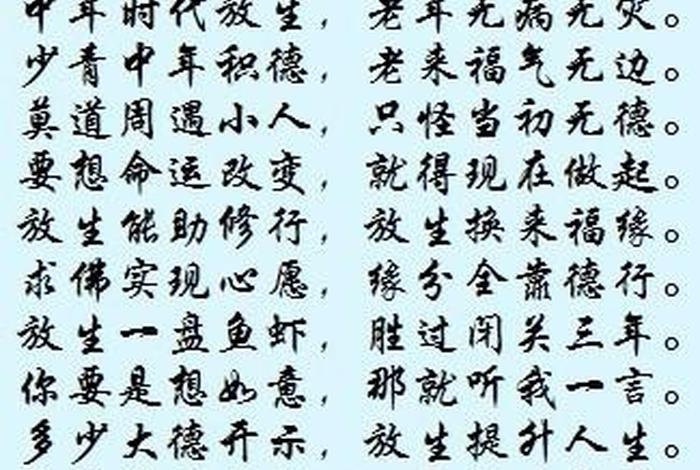 中年时代放生，老年无病无灾。
少青中年积德，老来福气无边。
莫道周遇小人，只怪当初无德。
要想命运改变，就得现在做起。
放生能助修行，放生换来福缘。
求佛实现心愿，缘分全靠德行。
放生一盘鱼虾，胜过闭关三年。
你要是想如意，那就听我一言。
多少大德开示，放生提升人生。